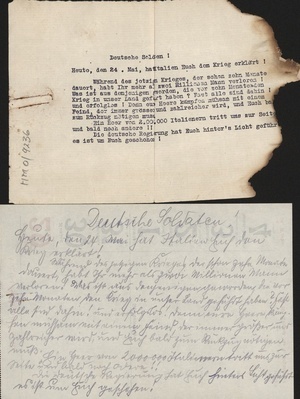 Deutsche Solden !
Heute, den 24 . Mai, hat Italien Euch dem Krieg erklärt !
Während des jetzigen Krieges, der schon zehn Monate
dauert, habt Ihr mehr als zwei Millionen Mann verloren !
Was ist aus denjenigen geworden, die vor zehn Monaten den
Krieg in unser Land geführt haben ? Fast alle sind dahin !
und erfolglos ! Denn eure Heere kämpfen mit einem
Feind, der immer grösser und zahlreicher wird, und Euch bald
zum Rückzug nötigen muss.
Ein Heer von 2,00,000 Italienern tritt uns zur Seite
und bald noch andere !!
Die deutsche Regierung hat Euch hinter's Licht geführt
es ist um Euch geschehen !
MM 0/9236
Deutsche Soldaten!
Heute, den 24. Mai hat Italien Euch den
Krieg erklärt!
Während des jetzigen Krieges der schon zehn Monate
dauert, habt Ihr mehr als zwei Millionen Mann
verloren! Was ist aus denjenigen geworden die vor
zehn Monaten den Krieg in unser Land geführt haben? Fast
alle sind dahin! und erfolglos! denn eure Heere
kämpfen mit einem Feind der immer größer und
zahlreicher wird und Euch bald zum Rückzug nötigen
muß.
Ein Heer von 2000000 Italienern tritt uns zur
Seite und bald noch andere!!
Die deutsche Regierung hat Euch hinter's Licht geführt
es ist um Euch geschehen!